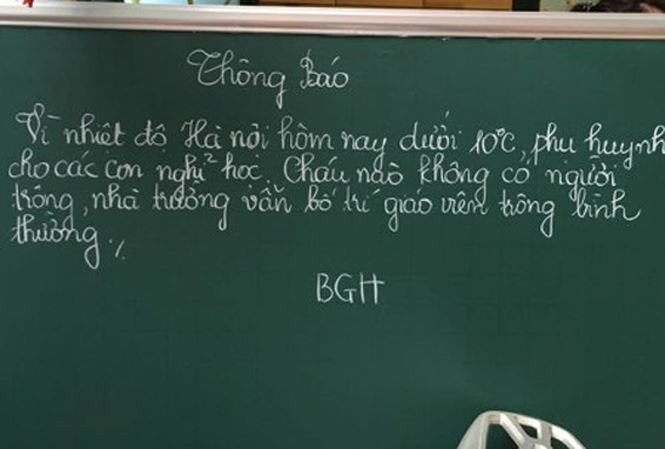 Thông Báo
Vì nhiệt độ Hà nội hôm nay dưới 10°C, phu huynh
cho các con nghỉ học. Cháu nào không có người
trông, nhà trường vẫn bố trí giáo viên trông bình
thường ./.
BGH